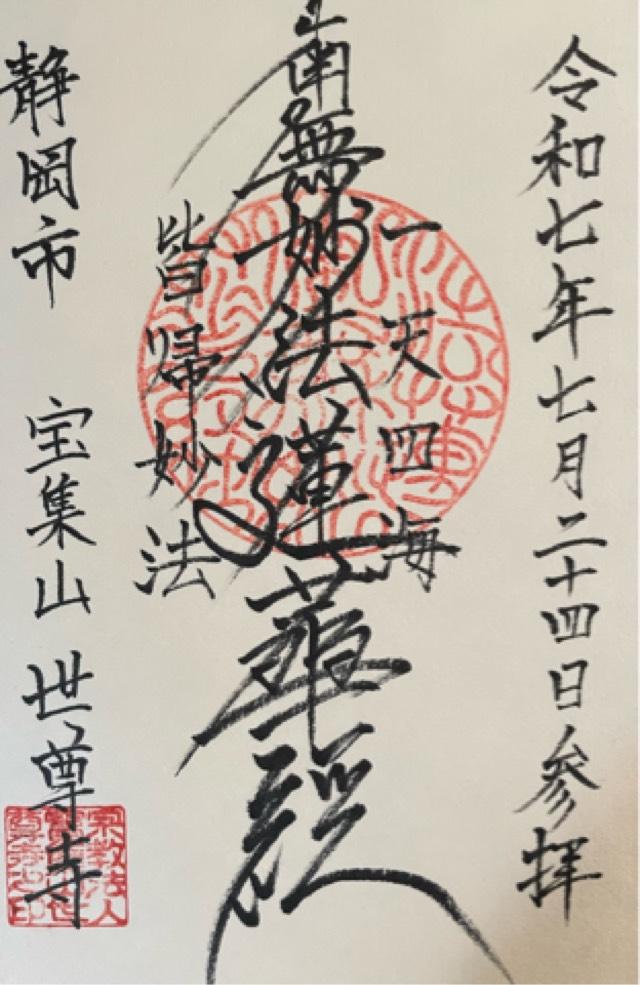 令和七年七月二十四日参拝
一天四海
南無妙法蓮華経
皆帰妙法
静岡市 宝集山 世尊寺